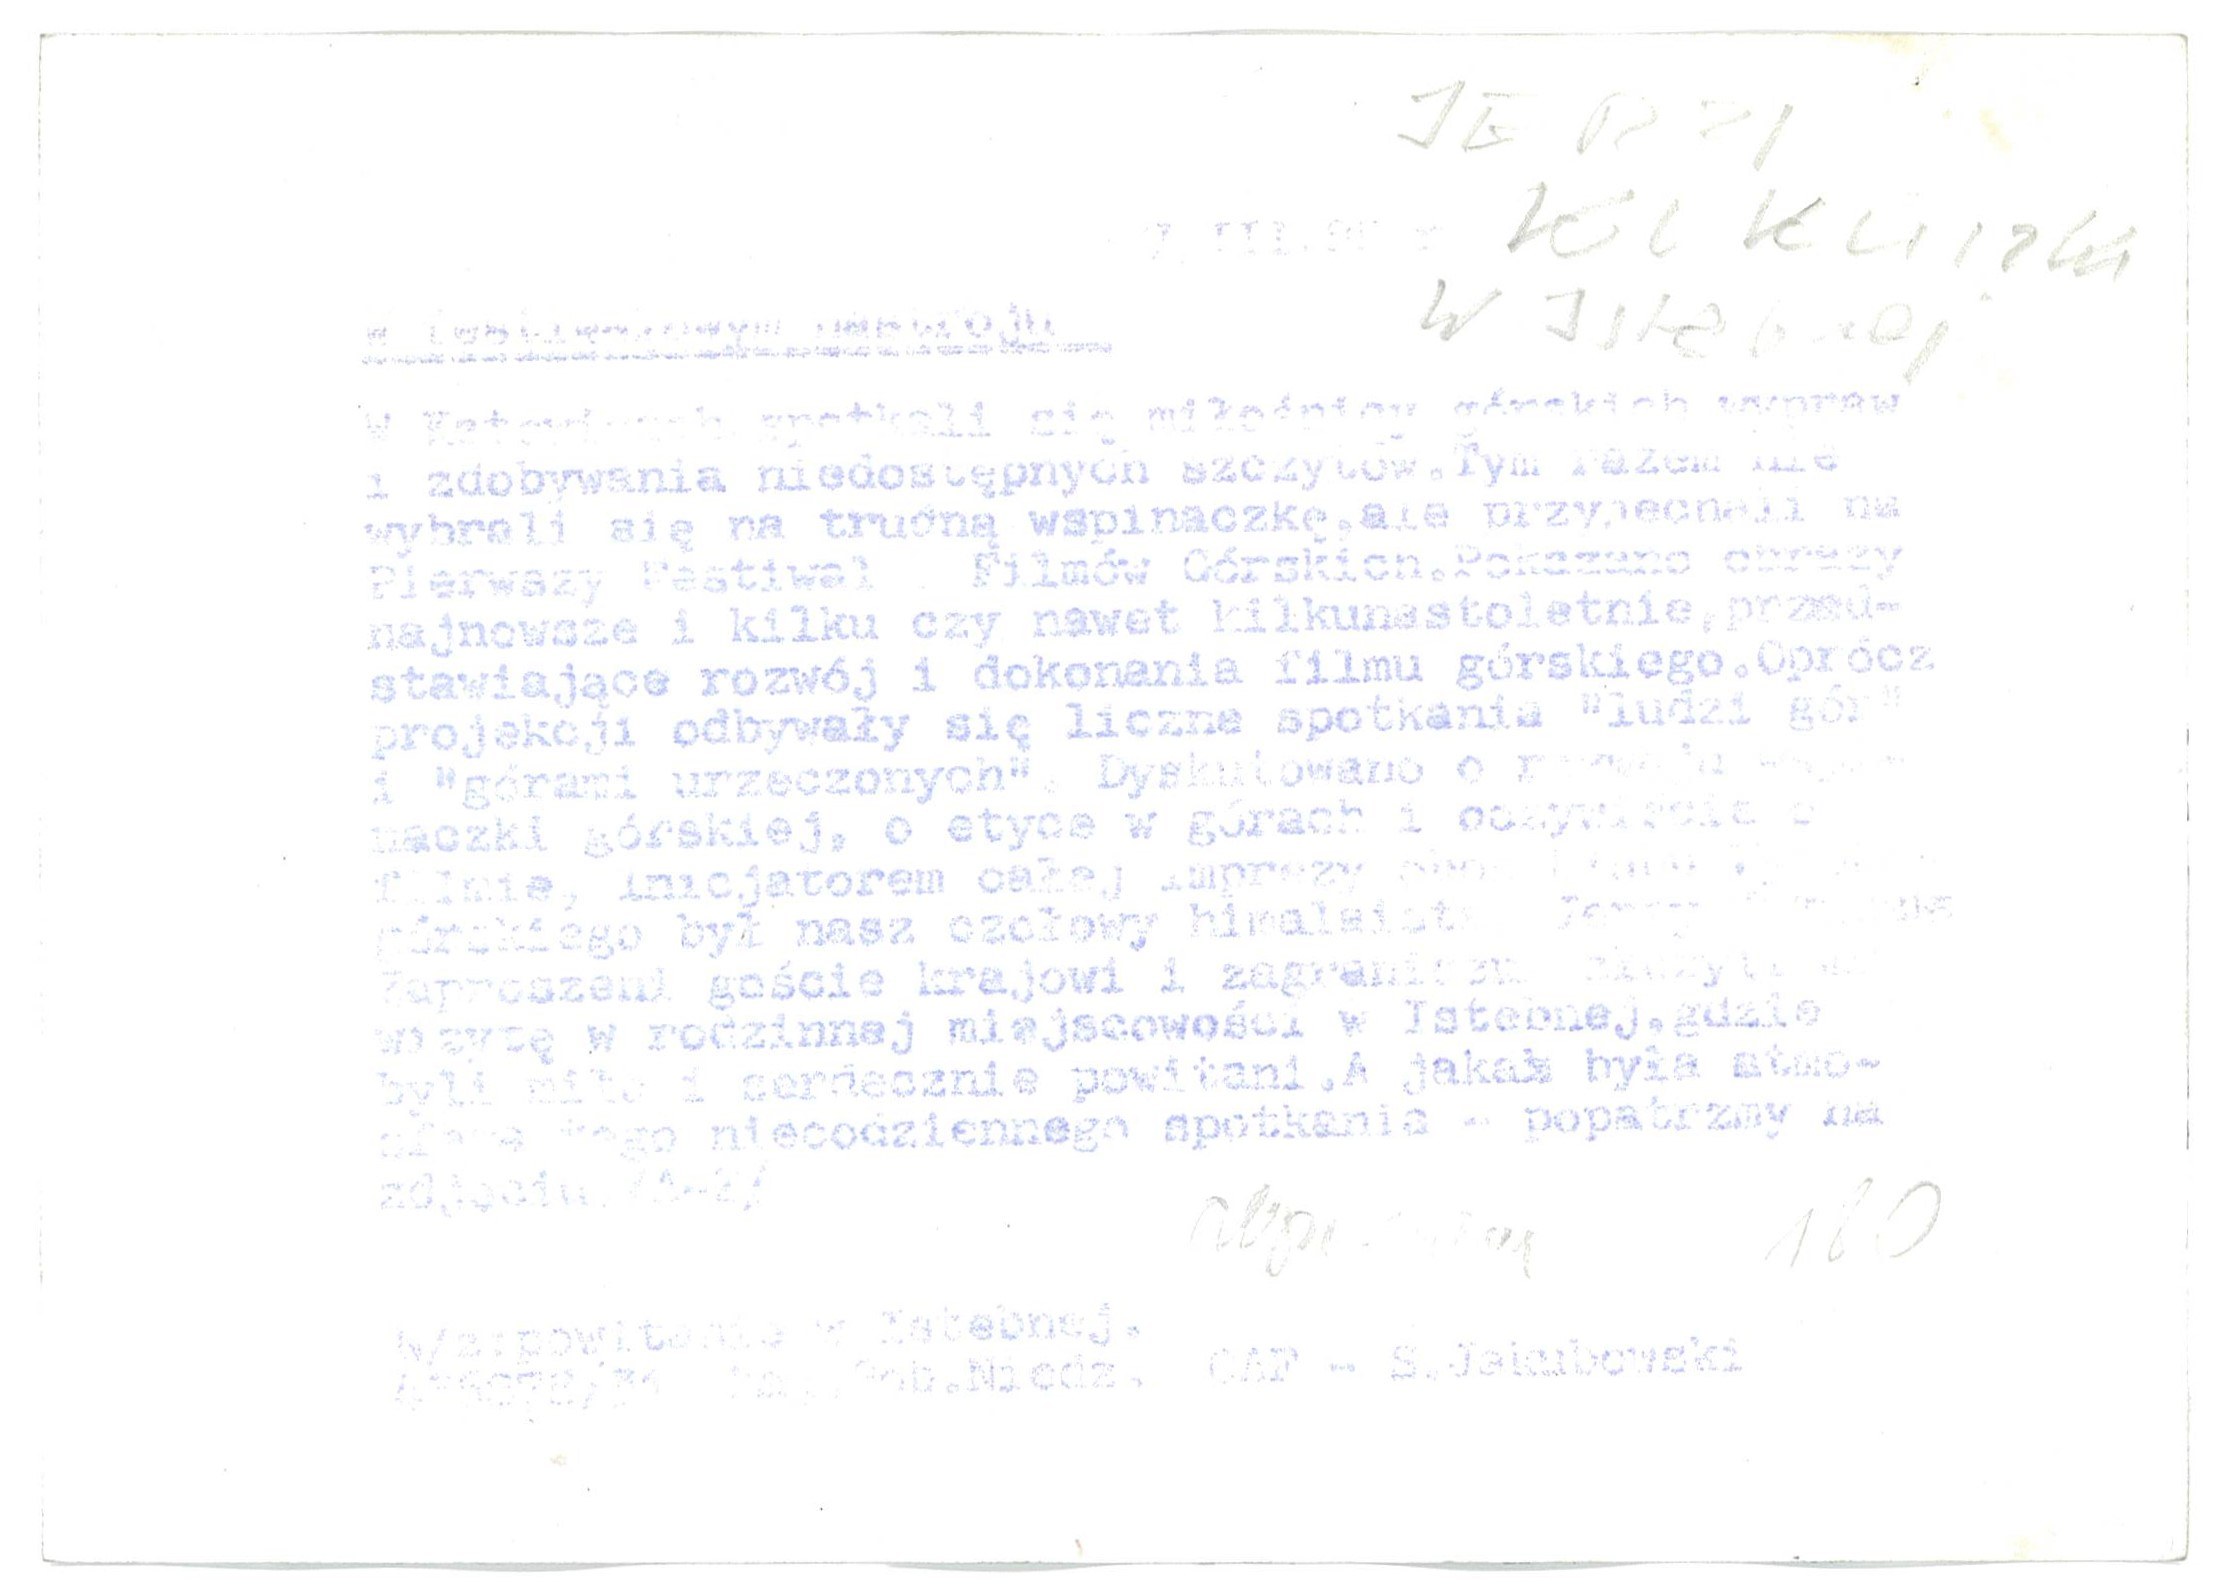 JERZY
KUKUCZKA
7 III.
W Istebnej
W festiwalowym nastroju
W Katowicach spotkali się miłośnicy górskich wypraw
i zdobywania niedostępnych szczytów.Tym razem nie
wybrali się na trudną wspinaczkę,ale przyjechali na
Pierwszy Festiwal Filmów Górskich.Pokazano obrazy
najnowsze i kilku czy nawet kilkunastoletnie,przed-
stawiające rozwój i dokonania filmu górskiego.Oprócz
projekcji odbywały się liczne spotkania "ludzi gór"
i "górami urzeczonych". Dyskutowano o rozwoju wspi-
naczki górskiej, o etyce w górach i oczywiście o
filmie, inicjatorem całej imprezy
górskiego był nasz czołowy himalaista Jerzy
Zaproszeni goście krajowi i zagraniczni złożyli
wizytę w rodzinnej miejscowości w Istebnej,gdzie
byli miło i serdecznie powitani.A jakaś była atmo-
sfera tego niecodziennego spotkania - popatrzmy na
zdjęcia./A-Z/
180
N/z:powitanie w Istebnej.
Niedz. CAF - S.Jakubowski